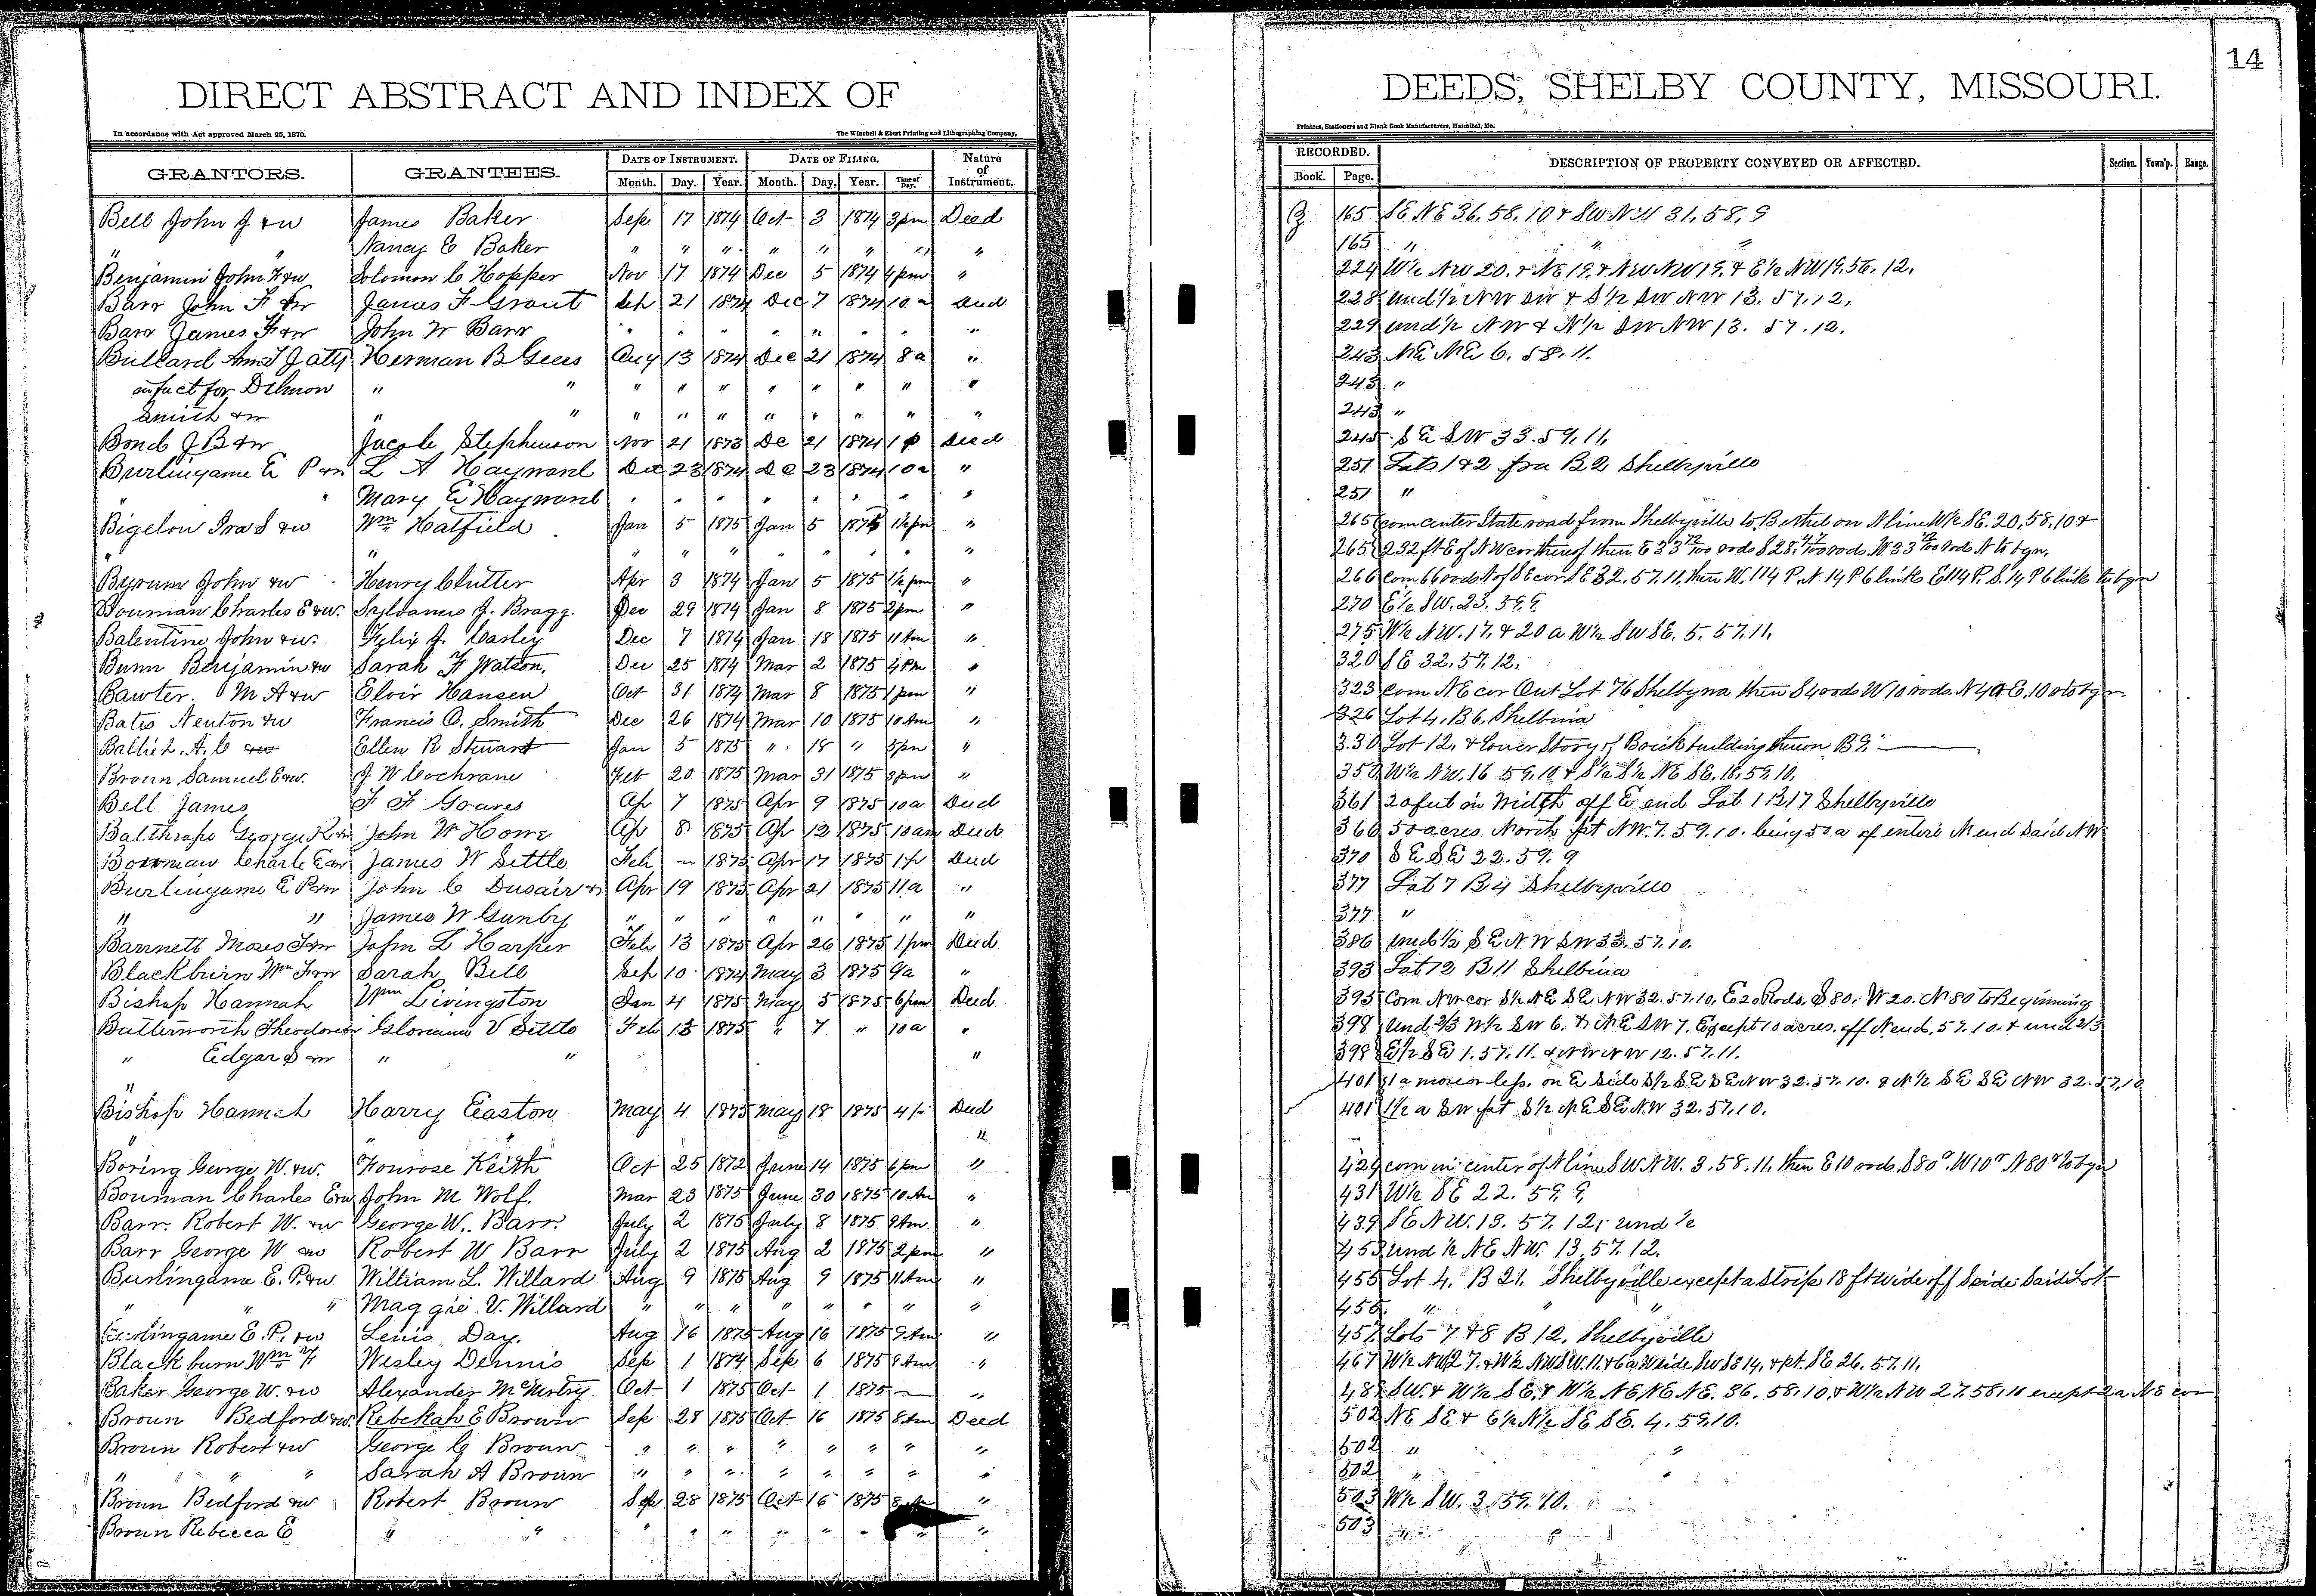 DIRECT ABSTRACT AND INDEX OF
In accordance with Act approved March 25, 1870. The Winchell & Ebert Printing and Lithographing Company,
GRANTORS. GRANTEES. DATE OF INSTRUMENT. DATE OF FILING. Nature of Instrument.
Month. Day. Year. Month. Day. Year. Time of Day.
Bell John J & w James Baker Sep 17 1874 Oct 3 1874 3pm Deed
" " Nancy E Baker " " " " " " " "
Benjamin John F & w Solomon C Hopper Nov 17 1874 Dec 5 1874 4pm "
Barr John F & w James F Grant 21 1874 Dec 7 1874 10 a Deed
Barr James F & w John W Barr " " " " " " " "
Bullard Atty Herman B Gees Aug 13 1874 Dec 21 1874 8 a "
in fact for Delmon " " " " " " " " " "
Smith & w " " " " " " " " " "
Bond J B & w Jacob Stephenson Nov 21 1873 De 21 1874 1 p Deed
Burlingame E P & w L A Hayward Dec 23 1874 De 23 1874 10 a "
" " Mary E Hayward " " " " " " " "
Bigelow Ira S & w Wm Hatfield Jan 5 1875 Jan 5 1875 1½ pm "
" " " " " " " " " "
Byrum John & w Henry Clutter Apr 3 1874 Jan 5 1875 1½ pm "
Bouman Charles E & w. Sylvanus J. Bragg Dec 29 1874 Jan 8 1875 2pm "
Balentine John & w. Felix J. Carley Dec 7 1874 Jan 18 1875 11 Am "
Bunn Benjamin & w Sarah F Watson. Dec 25 1874 Mar 2 1875 4 Pm "
Bawter. M A & w Elvir Hansen Oct 31 1874 Mar 8 1875 1 pm "
Bates Newton & w Francis O. Smith Dec 26 1874 Mar 10 1875 10 Am "
A. C Ellen R Stewart Jan 5 1875 " 18 " 5pm "
Broun Samuel E & w. J W Cochrane Feb 20 1875 Mar 31 1875 3 pm "
Bell James F F Graves Ap 7 1875 Apr 9 1875 10 a Deed
Balthrope George K & w John W Howe Ap 8 1875 Ap 12 1875 10 am Deed
Bowman Charle E & w James W Settle Feb ~ 1875 Apr 17 1875 1 p Deed
Burlingame E P & w John C Dusair & Apr 19 1875 Apr 21 1875 11 a "
" " James W Gunby " " " " " " " "
Barnett Moses F & w John L Harper Feb 13 1875 Apr 26 1875 1 pm Deed
Blackburn Wm F & w Sarah Bell Sep 10 1874 May 3 1875 9 a "
Bishop Hannah Wm Livingston Jan 4 1875 May 5 1875 6 pm Deed
Butterworth Theodore & w V Settle Feb 13 1875 " 7 " 10 a "
" Edgar S & w " " "
"
Bishop Hannah Harry Easton May 4 1875 May 18 1875 4 p Deed
" " " "
Boring George W. & w. Fonrose Keith Oct 25 1872 June 14 1875 6 pm "
Bouman Charles E & w John M Wolf. Mar 23 1875 June 30 1875 10 Am "
Barr. Robert W. & w George W. Barr. July 2 1875 July 8 1875 9 Am "
Barr George W & w Robert W Barr July 2 1875 Aug 2 1875 2 pm "
Burlingame E. P. & w William L. Willard Aug 9 1875 Aug 9 1875 11 Am "
" " " Maggie V. Willard " " " " " " " "
Burlingame E. P. & w Lewis Day. Aug 16 1875 Aug 16 1875 9 Am "
Blackburn Wm F Wesley Dennis Sep 1 1874 Sep 6 1875 8 Am "
Baker George W. & w Alexander McMurtry. Oct 1 1875 Oct 1 1875 — "
Broun Bedford & w. Rebekah E Broun Sep 28 1875 Oct 16 1875 8 Am Deed
Broun Robert & w George C Broun " " " " " " " "
" " " Sarah A Broun " " " " " " " "
Broun Bedford & w Robert Broun Sep 28 1875 Oct 16 1875 8 "
Broun Rebecca E " " " " " " " " " "
14
DEEDS, SHELBY COUNTY, MISSOURI.
Printers, Stationers and Blank Book Manufacturers, Hannibal, Mo.
RECORDED. DESCRIPTION OF PROPERTY CONVEYED OR AFFECTED. Section. Town'p. Range.
Book. Page.
165 SE NE 36. 58. 10 & SW NW 31. 58. 9
165 " " "
224 W½ NW 20. & NE 19. & NW NW 19. & E½ NW 19. 56. 12.
228 und ½ NW SW & S½ SW NW 13. 57. 12.
229 und ½ NW & N½ SW NW 13. 57. 12.
243 NE NE 6. 58. 11.
243 "
243 "
245 SE SW 33. 59. 11.
251 Lots 1 & 2 fra B 2 Shelbyville
251 "
265 com center State road from Shelbyville to Bethel on N line W½ SE. 20, 58, 10 &
265 232 ft E of NW cor thereof then E 33 72/100 rods S 28. 47/100 rods. W 33 72/100 Rods N to bgn.
266 com 66 rods N of SE cor SE 32. 57. 11. then W. 114 P. N 14 P 6 links E 114 P. S. 14 P 6 links to bgn
270 E½ SW. 23. 59. 9.
275 W½ NW. 17. & 20 a W½ SW SE. 5. 57. 11.
320 SE 32. 57. 12.
323 com NE cor Out Lot 76 Shelbyna then S 4 rods W 10 rods. N 4 E. 10 to bgn
326 Lot 4. B 6. Shelbina
330 Lot 12. & lower Story of Brick building thereon B 9. —
350 W½ NW. 16 59. 10 & S½ S½ NE SE. 18. 59. 10.
361 20 feet in width off E end Lot 1 B 17 Shelbyville
366 50 acres North pt NW. 7. 59. 10. being 50 a of entire N end said NW
370 SE SE 22. 59. 9
377 Lot 7 B 4 Shelbyville
377 "
386 und ½ SE NW SW 33. 57. 10.
393 Lot 12 B 11 Shelbina
395 Com NW cor S½ NE SE NW 32. 57. 10. E 20 Rods. S 80. W 20. N 80 To Beginning
398 Und 2/3 W½ SW 6. & NE SW 7. Except 10 acres. off N end, 57. 10. & und 2/3
398 E½ SE 1. 57. 11. & NW NW 12. 57. 11.
401 1 a more or less. on E Side S½ SE SE NW 32. 57. 10. & N½ SE SE NW 32. 57, 10
401 1½ a SW pt S½ NE SE NW 32. 57. 10.
424 com in center of N line SW NW. 3. 58. 11. then E 10 rods. S 80 " W 10 " N 80 " to bgn
431 W½ SE 22. 59. 9.
439 SE NW. 13. 57. 12. und ½
453 und ½ NE NW. 13. 57. 12.
455 Lot 4. B 21. Shelbyville except a strip 18 ft wide off S side Said Lot
455. " " "
457 Lots 7 & 8 B 12, Shelbyville
467 W½ NW 27. & W½ NW SW. 11. & 6 a W side SW SE 14. & pt. SE 26. 57. 11.
SW. & W½ SE. & W½ NE NE NE. 36. 58. 10. & W½ NW 27. 58. 10 except 2 a NE cor
502 NE SE & E½ N½ SE SE. 4. 59. 10.
502 " "
502 " "
503 W½ SW. 3. 59. 10.
503 " "